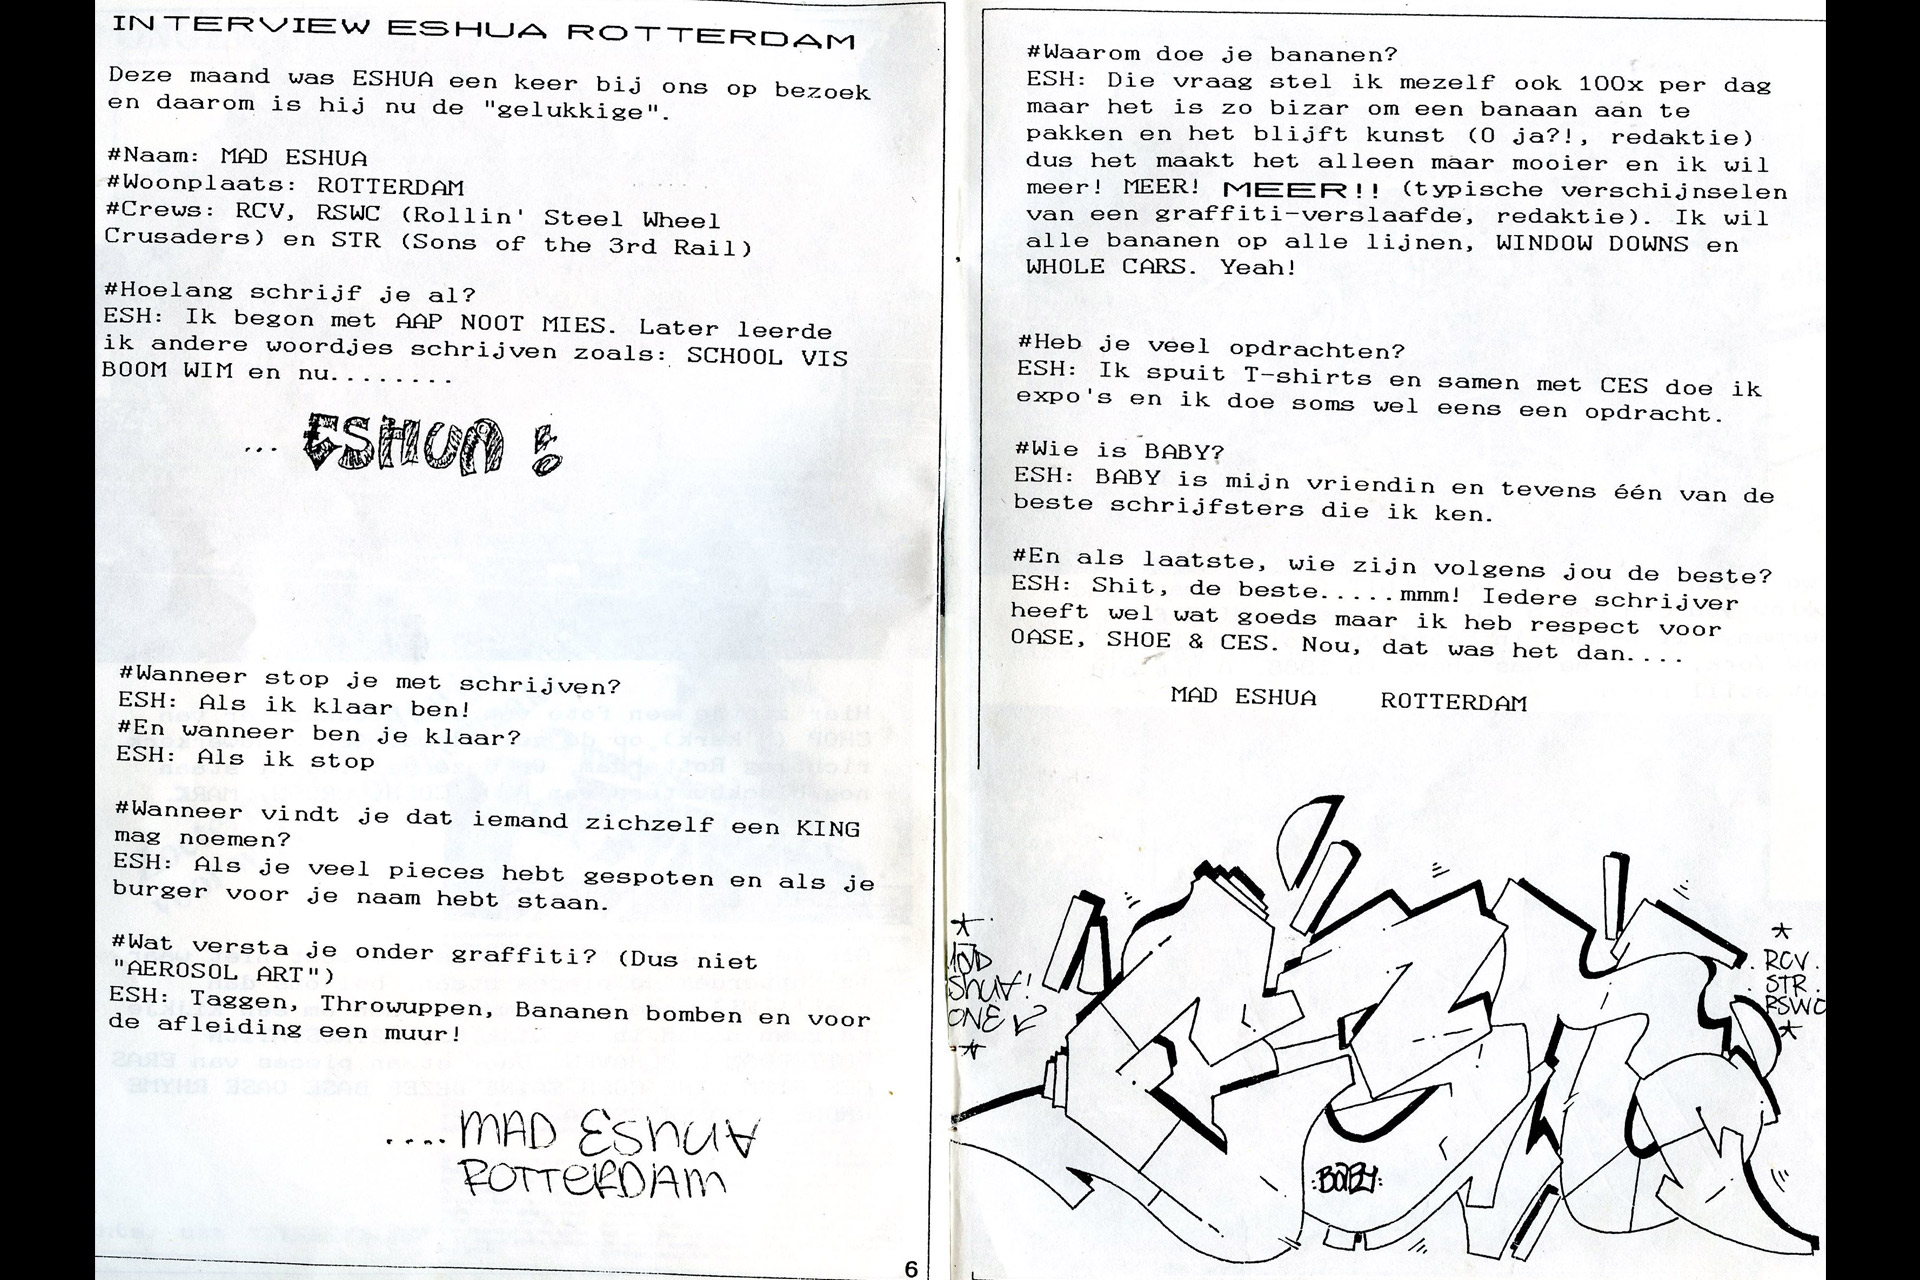 INTERVIEW ESHUA ROTTERDAM
Deze maand was ESHUA een keer bij ons op bezoek
en daarom is hij nu de "gelukkige".
#Naam: MAD ESHUA
#Woonplaats: ROTTERDAM
#Crews: RCV, RSWC (Rollin' Steel Wheel
Crusaders) en STR (Sons of the 3rd Rail)
#Hoelang schrijf je al?
ESH: Ik begon met AAP NOOT MIES. Later leerde
ik andere woordjes schrijven zoals: SCHOOL VIS
BOOM WIM en nu........
... ESHUA !
#Wanneer stop je met schrijven?
ESH: Als ik klaar ben!
#En wanneer ben je klaar?
ESH: Als ik stop
#Wanneer vindt je dat iemand zichzelf een KING
mag noemen?
ESH: Als je veel pieces hebt gespoten en als je
burger voor je naam hebt staan.
#Wat versta je onder graffiti? (Dus niet
"AEROSOL ART")
ESH: Taggen, Throwuppen, Bananen bomben en voor
de afleiding een muur!
....MAD ESHUA
ROTTERDAM
6
#Waarom doe je bananen?
ESH: Die vraag stel ik mezelf ook 100x per dag
maar het is zo bizar om een banaan aan te
pakken en het blijft kunst (O ja?!, redaktie)
dus het maakt het alleen maar mooier en ik wil
meer! MEER! MEER!! (typische verschijnselen
van een graffiti-verslaafde, redaktie). Ik wil
alle bananen op alle lijnen, WINDOW DOWNS en
WHOLE CARS. Yeah!
#Heb je veel opdrachten?
ESH: Ik spuit T-shirts en samen met CES doe ik
expo's en ik doe soms wel eens een opdracht.
#Wie is BABY?
ESH: BABY is mijn vriendin en tevens één van de
beste schrijfsters die ik ken.
#En als laatste, wie zijn volgens jou de beste?
ESH: Shit, de beste.....mmm! Iedere schrijver
heeft wel wat goeds maar ik heb respect voor
OASE, SHOE & CES. Nou, dat was het dan....
MAD ESHUA ROTTERDAM
ONE
RCV.
STR.
RSWC
:BABY: